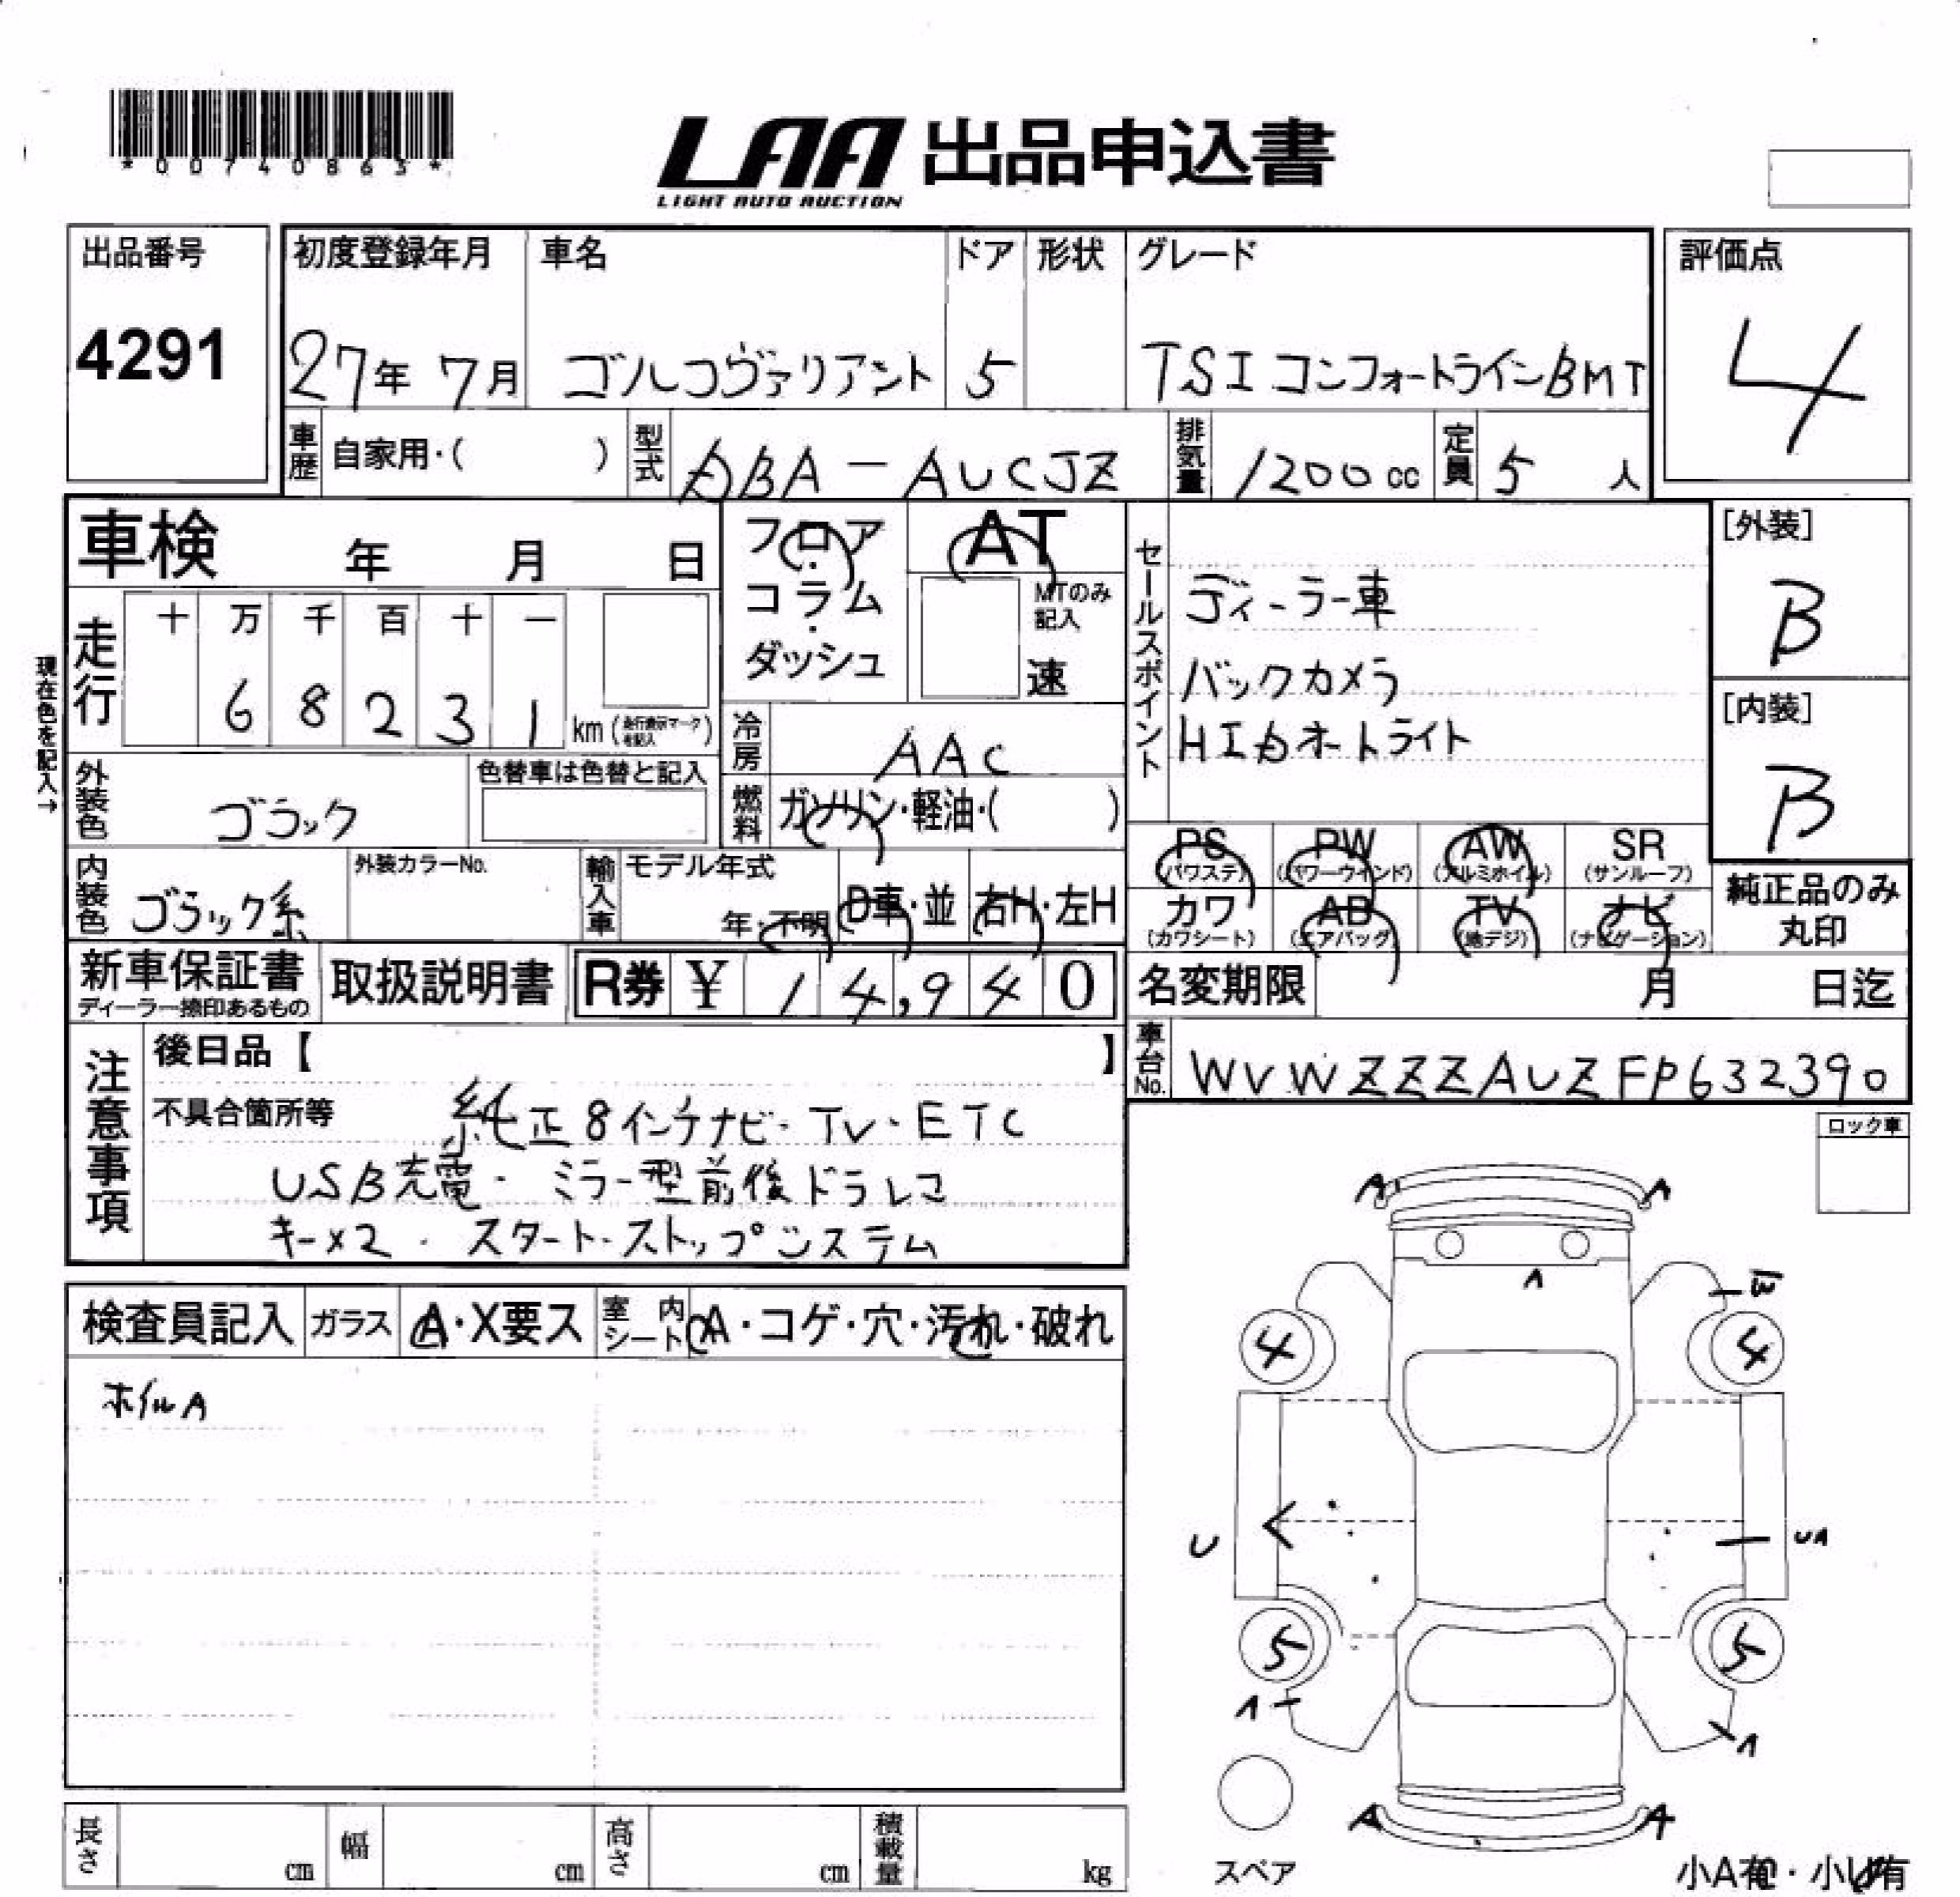 *00740865*
LAA 出品申込書
LIGHT AUTO AUCTION
出品番号 初度登録年月 車名 ドア 形状 グレード 評価点
4291 27年 7月 ゴルフヴァリアント 5 TSI コンフォートラインBMT 4
車歴 自家用・( ) 型式 DBA-AUCJZ 排気量 1200cc 定員 5 人
車検 年 月 日
フロア・コラム・ダッシュ
AT
MTのみ記入
速
セールスポイント
ディーラー車
バックカメラ
HIDオートライト
[外装]
B
[内装]
B
現在色を記入→
走行 十 万 千 百 十 一
6 8 2 3 1 km (走行表示マークを記入)
冷房 AAC
外装色 ブラック 色替車は色替と記入
燃料 ガソリン・軽油・( )
PS (パワステ) PW (パワーウインド) AW (アルミホイル) SR (サンルーフ)
内装色 ブラック系 外装カラーNo. 輸入車 モデル年式 年・不明 D車・並 右H・左H
カワ (カワシート) AB (エアバッグ) TV (地デジ) ナビ (ナビゲーション)
純正品のみ丸印
新車保証書 ディーラー捺印あるもの 取扱説明書 R券 ¥ 14,940
名変期限 月 日迄
車台No. WVWZZZAUZFP632390
注意事項
後日品【 】
不具合箇所等 純正8インチナビ・TV・ETC
USB充電・ミラー型前後ドラレコ
キー×2・スタート・ストップシステム
ロック車
検査員記入 ガラス A・X要ス 室内シート A・コゲ・穴・汚れ・破れ
ホイルA
A A
A
W
4 4
U UA
5 5
A A
A A
スペア
小A有・小U有
長さ cm 幅 cm 高さ cm 積載量 kg